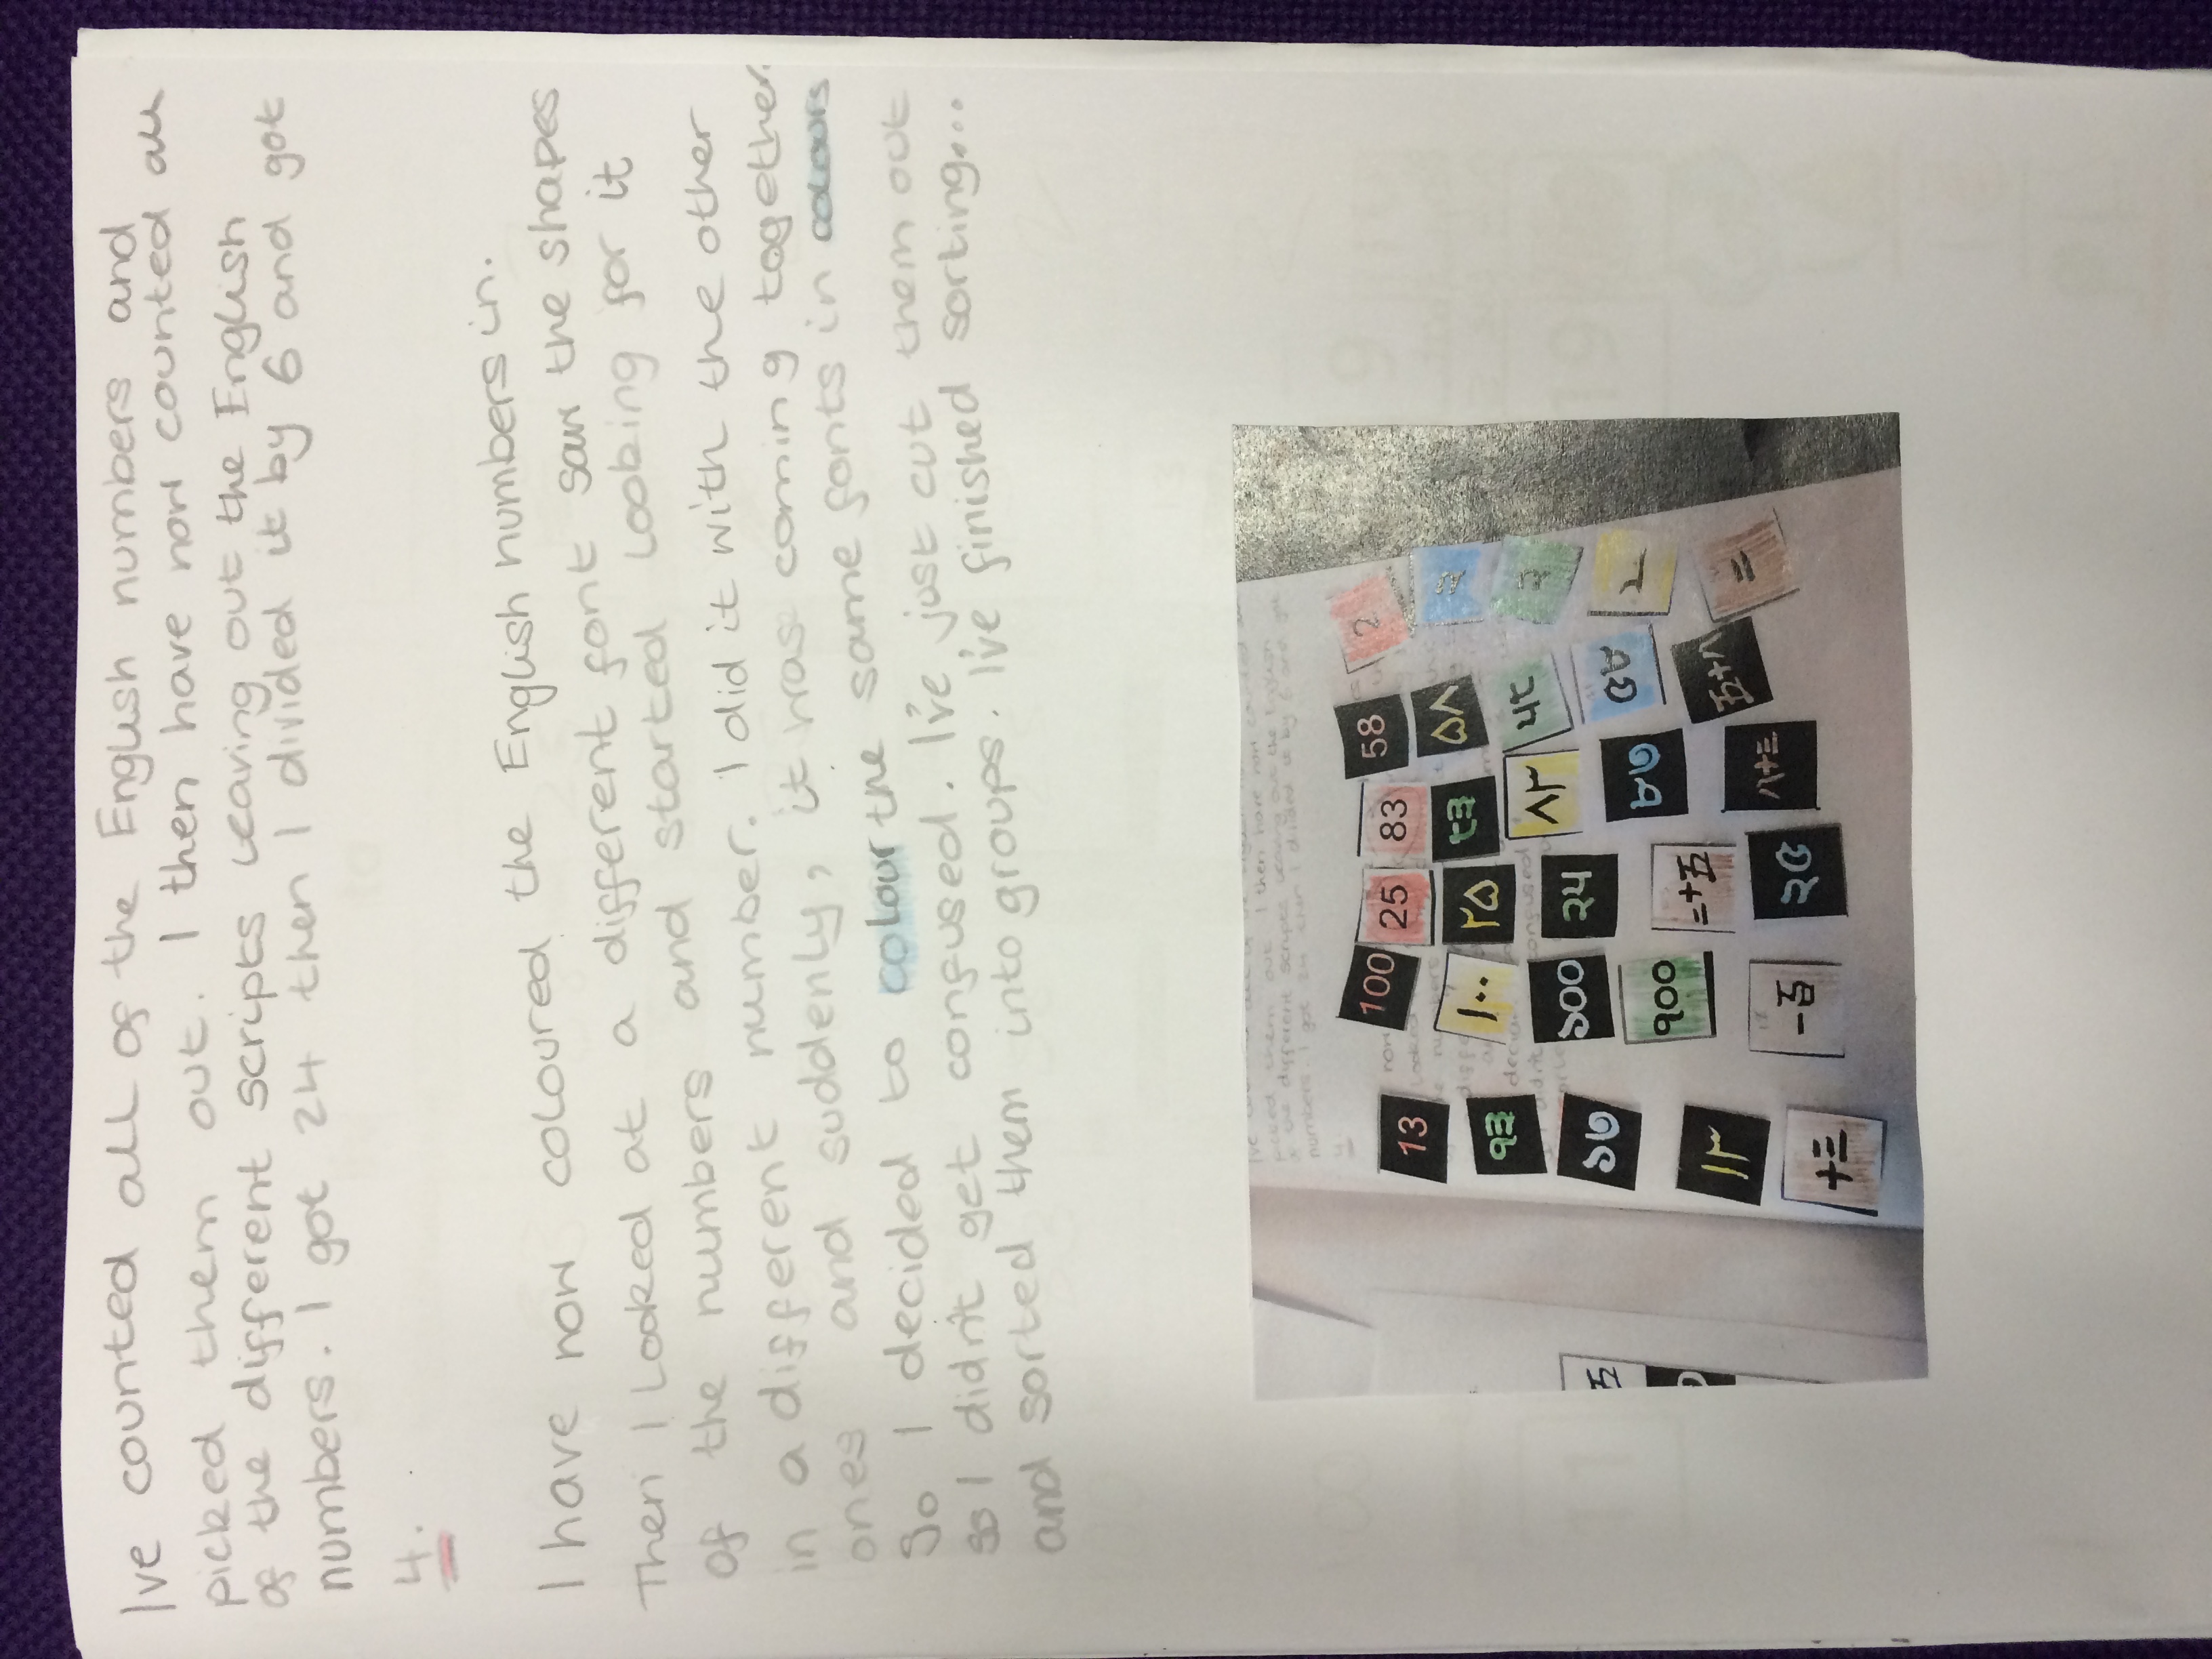 I've counted all of the English numbers and
picked them out. I then have now counted all
of the different scripts leaving out the English
numbers. I got 24 then I divided it by 6 and got
4.
I have now coloured the English numbers in.
Then I looked at a different font saw the shapes
of the numbers and started looking for it
in a different number. I did it with the other
ones and suddenly, it was coming together.
So I decided to colour the same fonts in colours
so I didn't get confused. I've just cut them out
and sorted them into groups. I've finished sorting...
13 100 25 83 58 2
१३ ۱۰۰ ۲۵ ८३ ۵۸ ২
১৩ ১০০ २५ ۸۳ ५८ २
۱۳ १०० 二十五 ৮৩ ৫৮ ۲
十三 一百 ২৫ 八十三 五十八 二